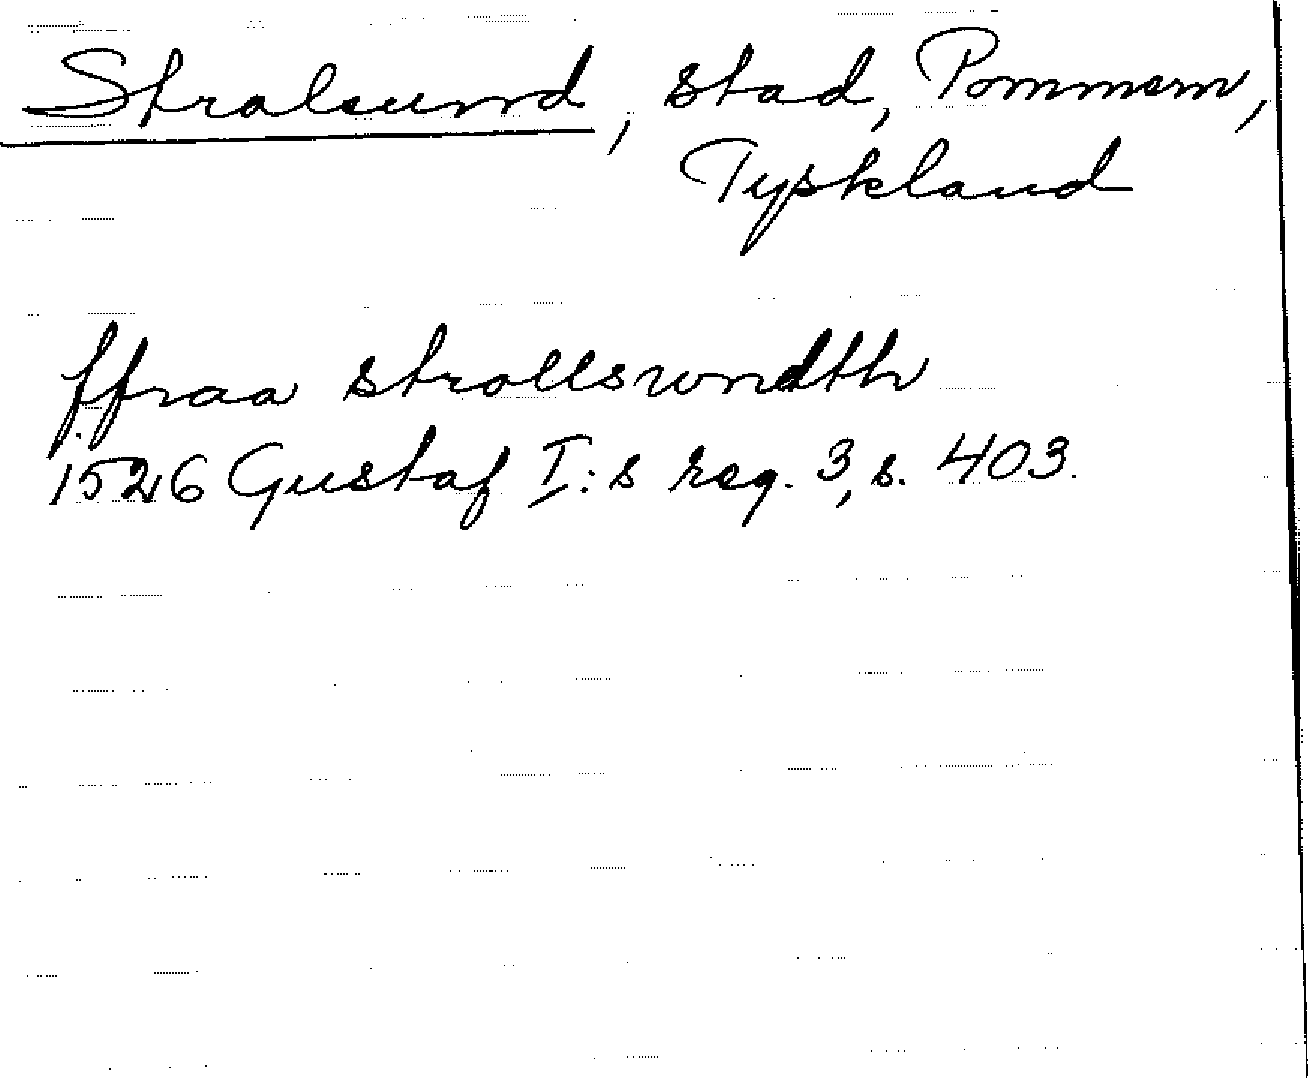 Stralsund, stad, Pommern,
Tyskland
ffraa strollswndth
1526 Gustaf I:s reg. 3, s. 403.